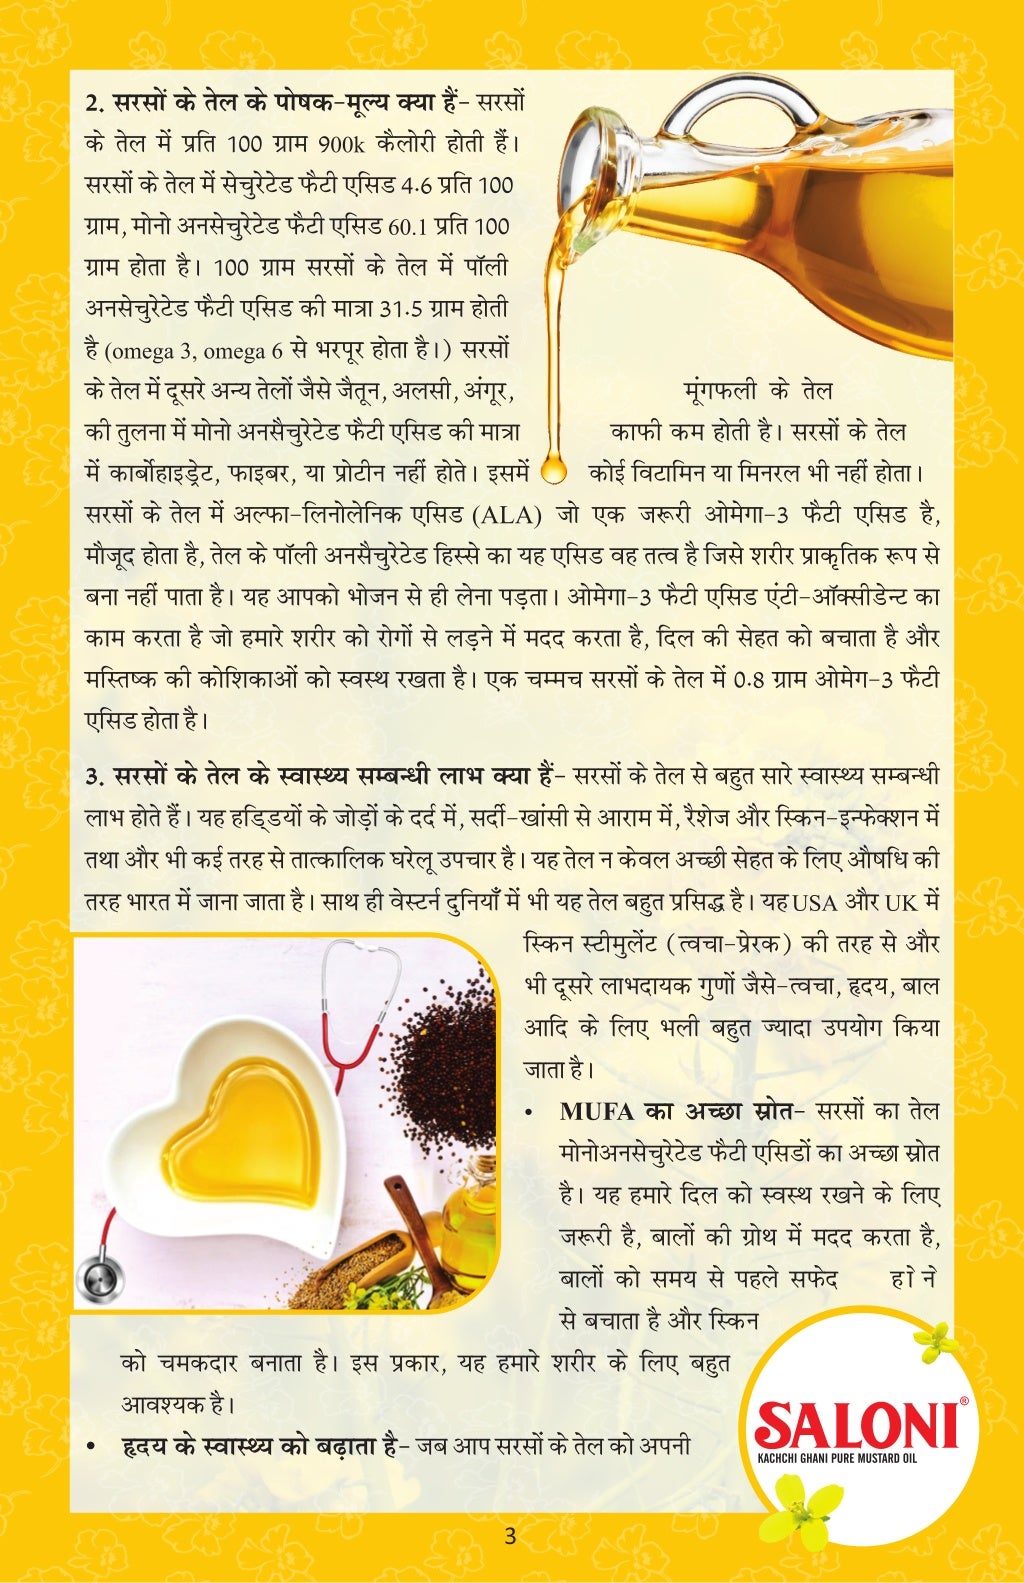 2. सरसों के तेल के पोषक-मूल्य क्या हैं- सरसों
के तेल में प्रति 100 ग्राम 900k कैलोरी होती हैं।
सरसों के तेल में सेचुरेटेड फैटी एसिड 4.6 प्रति 100
ग्राम, मोनो अनसेचुरेटेड फैटी एसिड 60.1 प्रति 100
ग्राम होता है। 100 ग्राम सरसों के तेल में पॉली
अनसेचुरेटेड फैटी एसिड की मात्रा 31.5 ग्राम होती
है (omega 3, omega 6 से भरपूर होता है।) सरसों
के तेल में दूसरे अन्य तेलों जैसे जैतून, अलसी, अंगूर, मूंगफली के तेल
की तुलना में मोनो अनसैचुरेटेड फैटी एसिड की मात्रा काफी कम होती है। सरसों के तेल
में कार्बोहाइड्रेट, फाइबर, या प्रोटीन नहीं होते। इसमें कोई विटामिन या मिनरल भी नहीं होता।
सरसों के तेल में अल्फा-लिनोलेनिक एसिड (ALA) जो एक जरूरी ओमेगा-3 फैटी एसिड है,
मौजूद होता है, तेल के पॉली अनसैचुरेटेड हिस्से का यह एसिड वह तत्व है जिसे शरीर प्राकृतिक रूप से
बना नहीं पाता है। यह आपको भोजन से ही लेना पड़ता। ओमेगा-3 फैटी एसिड एंटी-ऑक्सीडेन्ट का
काम करता है जो हमारे शरीर को रोगों से लड़ने में मदद करता है, दिल की सेहत को बचाता है और
मस्तिष्क की कोशिकाओं को स्वस्थ रखता है। एक चम्मच सरसों के तेल में 0.8 ग्राम ओमेग-3 फैटी
एसिड होता है।
3. सरसों के तेल के स्वास्थ्य सम्बन्धी लाभ क्या हैं- सरसों के तेल से बहुत सारे स्वास्थ्य सम्बन्धी
लाभ होते हैं। यह हडि्डयों के जोड़ों के दर्द में, सर्दी-खांसी से आराम में, रैशेज और स्किन-इन्फेक्शन में
तथा और भी कई तरह से तात्कालिक घरेलू उपचार है। यह तेल न केवल अच्छी सेहत के लिए औषधि की
तरह भारत में जाना जाता है। साथ ही वेस्टर्न दुनियाँ में भी यह तेल बहुत प्रसिद्ध है। यह USA और UK में
स्किन स्टीमुलेंट (त्वचा-प्रेरक) की तरह से और
भी दूसरे लाभदायक गुणों जैसे-त्वचा, हृदय, बाल
आदि के लिए भली बहुत ज्यादा उपयोग किया
जाता है।
• MUFA का अच्छा स्रोत- सरसों का तेल
मोनोअनसेचुरेटेड फैटी एसिडों का अच्छा स्रोत
है। यह हमारे दिल को स्वस्थ रखने के लिए
जरूरी है, बालों की ग्रोथ में मदद करता है,
बालों को समय से पहले सफेद होने
से बचाता है और स्किन
को चमकदार बनाता है। इस प्रकार, यह हमारे शरीर के लिए बहुत
आवश्यक है।
• हृदय के स्वास्थ्य को बढ़ाता है- जब आप सरसों के तेल को अपनी
SALONI®
KACHCHI GHANI PURE MUSTARD OIL
3